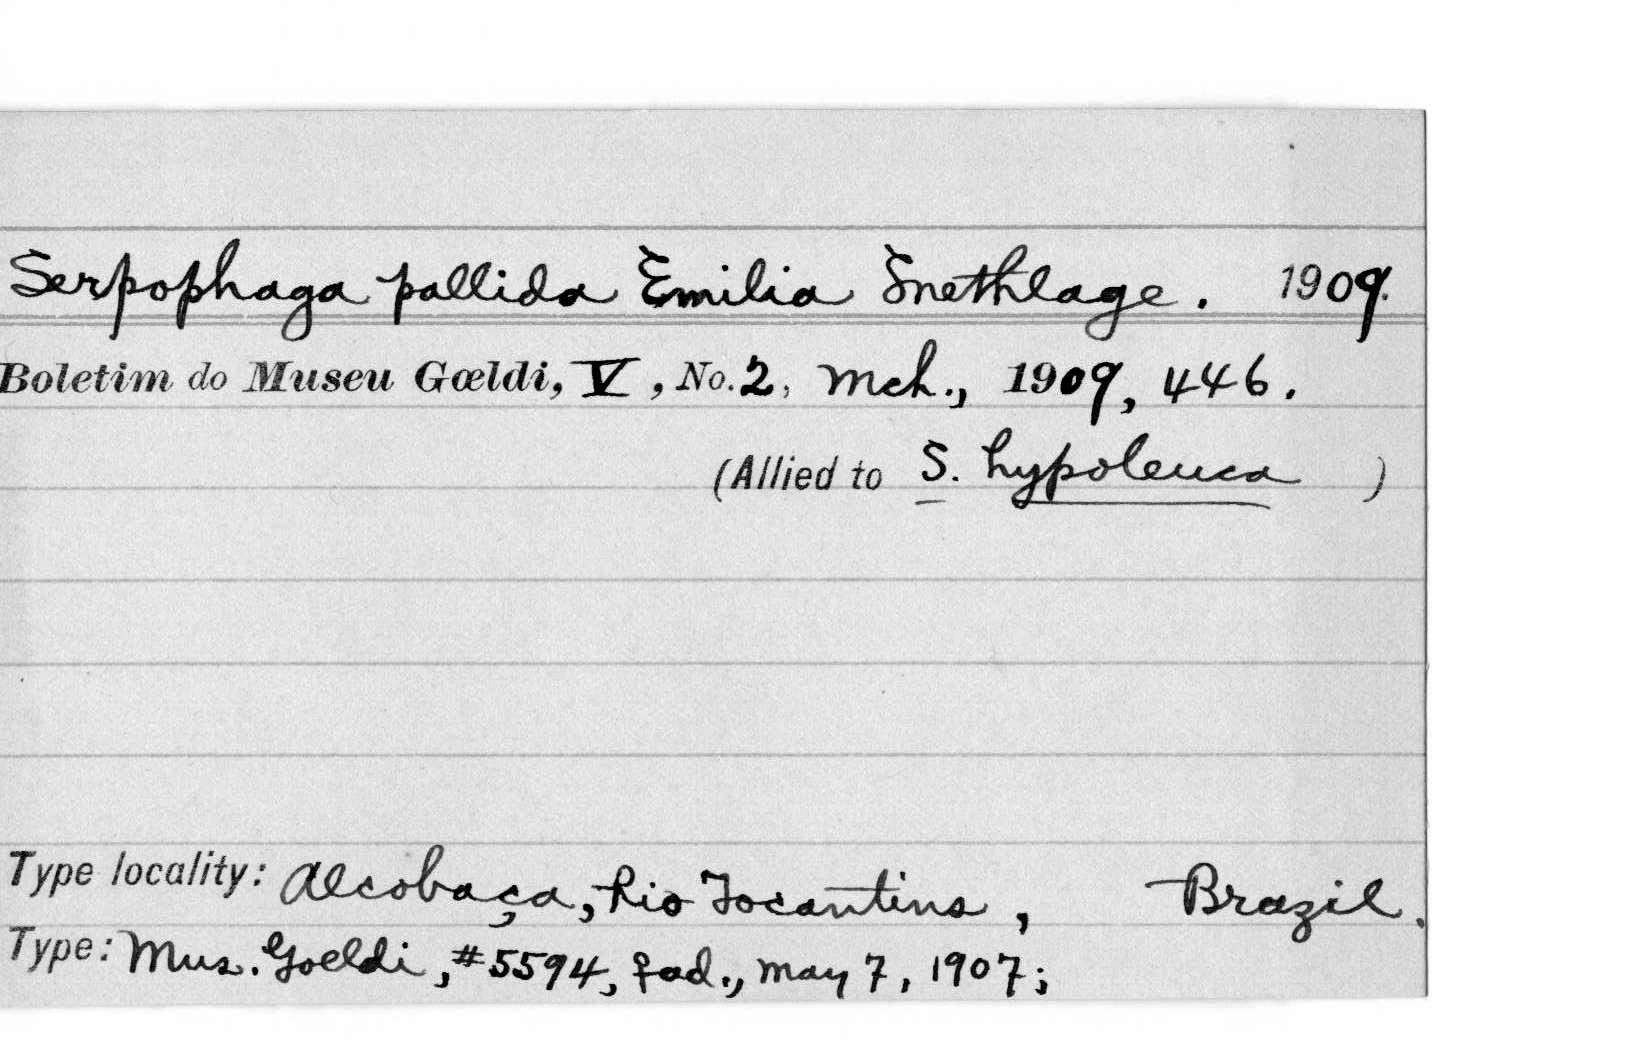 Serpophaga pallida Emilia Snethlage. 1909.
Boletim do Museu Gœldi, V, No. 2, Mch., 1909, 446.
(Allied to S. hypoleuca )
Type locality: Alcobaça, Rio Tocantins, Brazil.
Type: Mus. Goeldi, #5594, ♀ad., May 7, 1907;